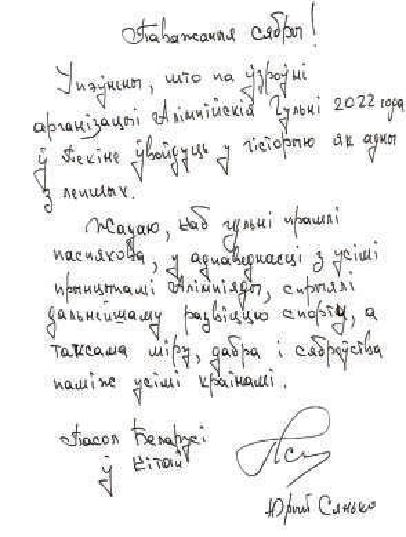 Паважаныя сябры!
Упэўнены, што па ўзроўні
арганізацыі Алімпійскія Гульні 2022 года
ў Пекіне ўвойдуць у гісторыю як адны
з лепшых.
Жадаю, каб гульні прайшлі
паспяхова, у адпаведнасці з усімі
прынцыпамі Алімпіяды, спрыялі
далейшаму развіццю спорту, а
таксама міру, дабра і сяброўства
паміж усімі краінамі.
Пасол Беларусі
ў Кітаі
Юрый Сянько